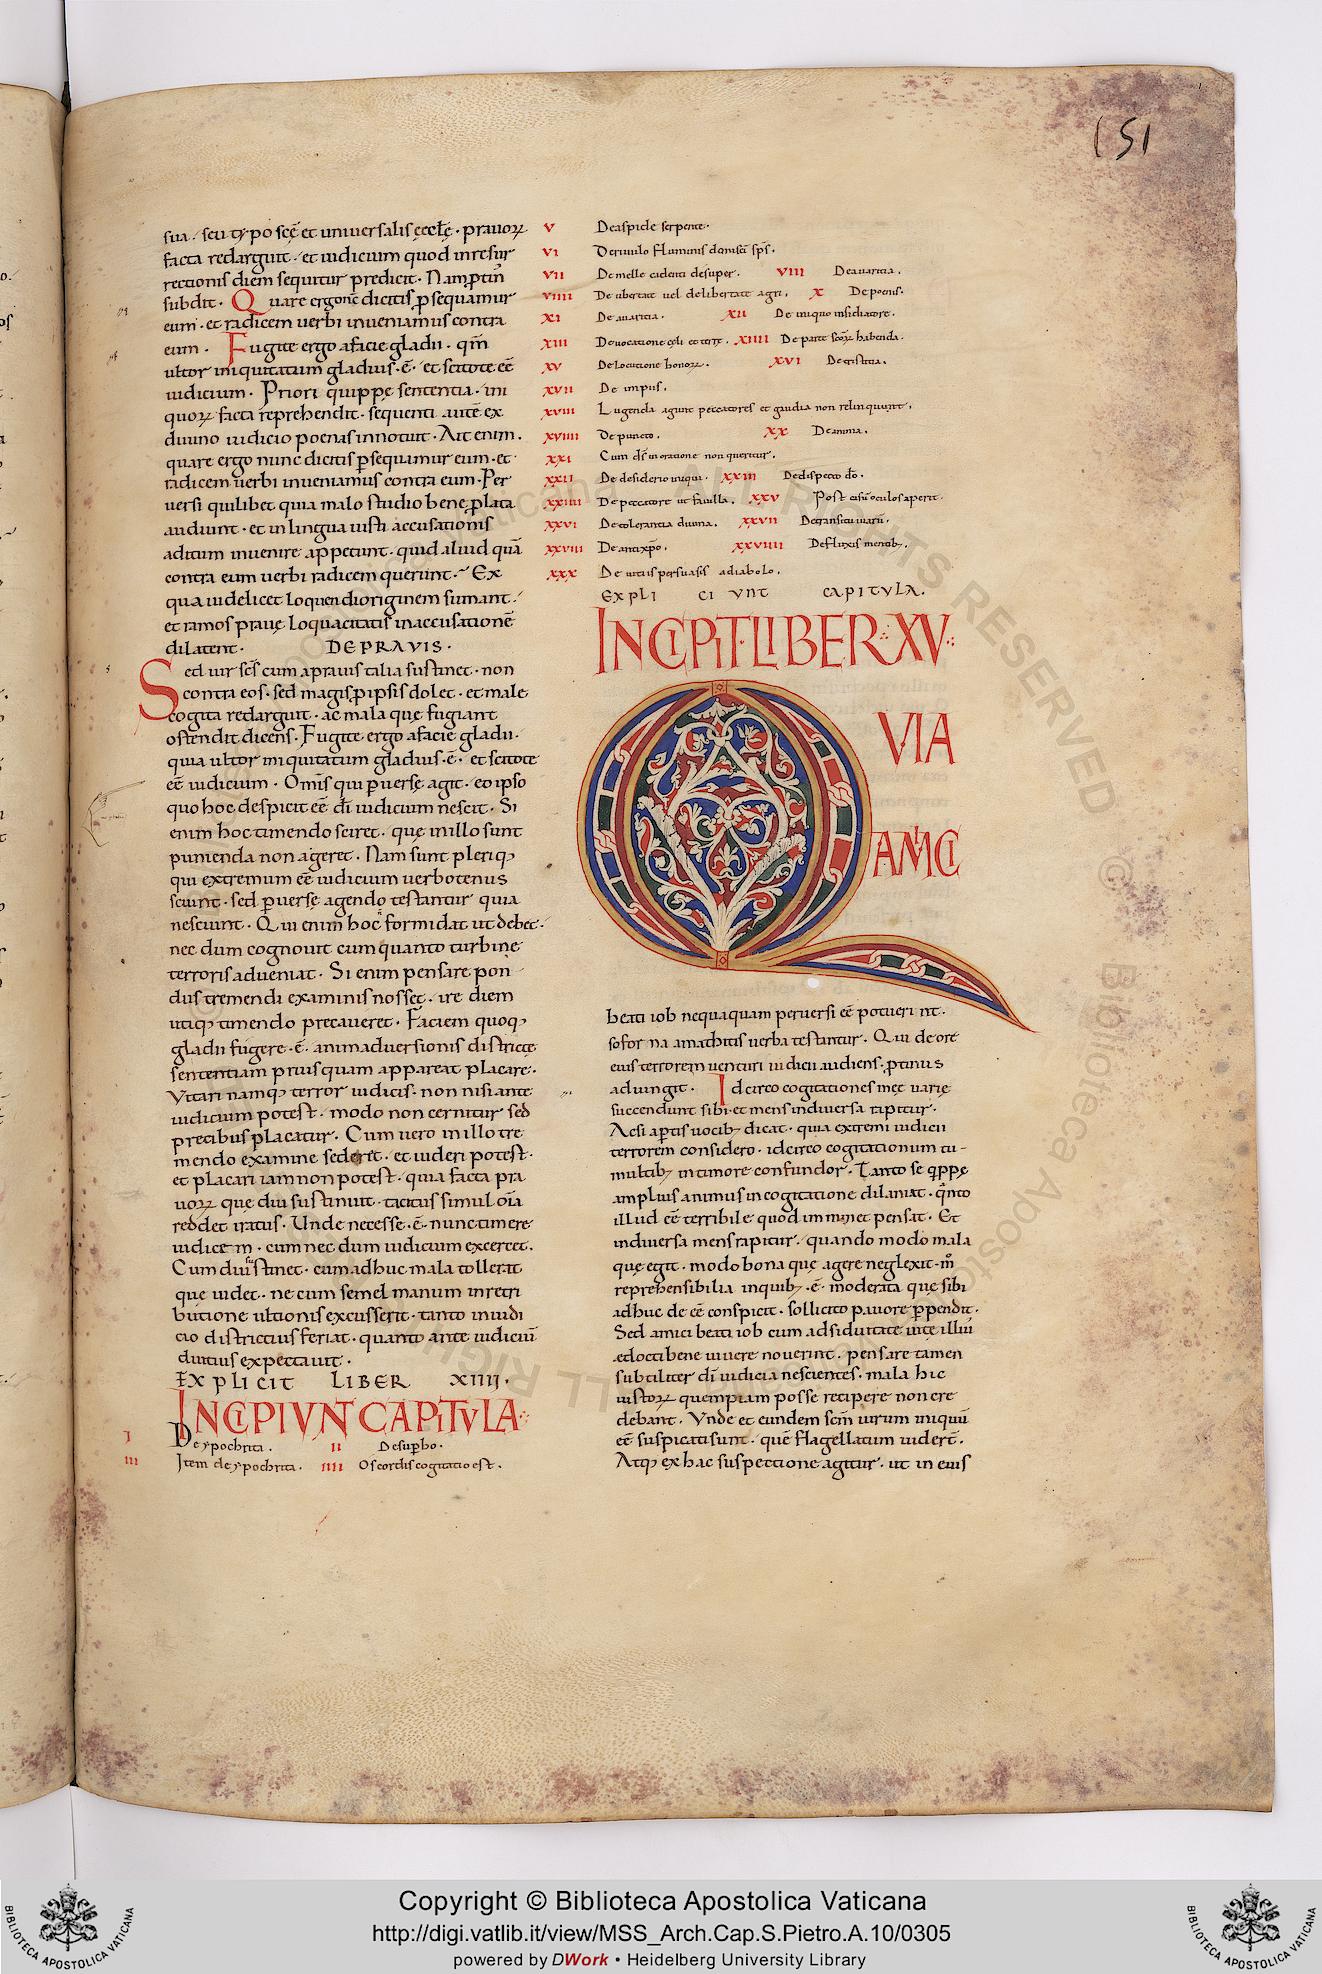 151
sua · seu typo scę et universalis ęcclę · pravorꝝ
facta redarguit · et iudicium quod in resur
rectionis diem sequitur predicit · Nam ptin̄
subdit · Quare ergo nc̄ dicitis ꝑsequamur
eum · et radicem verbi inveniamus contra
eum · Fugite ergo a facie gladii · qm̄
ultor iniquitatum gladius · ē · et scitote eē
iudicium · Priori quippę sententia · ini
quorꝝ facta reprehendit · sequenti autē ex
divino iudicio poenas innotuit · Ait enim ·
quare ergo nunc dicitis ꝑsequamur eum · et
radicem verbi inveniamus contra eum · Per
versi quilibet quia malo studio bene plata
audiunt · et in lingua iusti accusationis
aditum invenire appetunt · quid aliud quā
contra eum verbi radicem querunt · Ex
qua videlicet loquendi originem sumant ·
et ramos pravę loquacitatis in accusationē
dilatent · DE PRAVIS ·
Sed vir scs̄ cum a pravis talia sustinet · non
contra eos · sed magis ꝑ ipsis dolet · et male
cogita redarguit · ac mala quę fugiant
ostendit dicens · Fugite ergo a facie gladii ·
quia ultor iniquitatum gladius · ē · et scitote
eē iudicium · Omis̄ qui ꝑversę agit · eo ipso
quo hoc despicit eē dī iudicium nescit · Si
enim hoc timendo sciret · quę in illo sunt
punienda non ageret · Nam sunt pleriqꝫ
qui extremum eē iudicium verbotenus
sciunt · sed ꝑversę agendo testantur quia
nesciunt · Qui enim hoc formidat ut debet ·
nec dum cognovit cum quanto turbinę
terroris adveniat · Si enim pensare pon
dus tremendi examinis nosset · irę diem
utiqꝫ timendo precaveret · Faciem quoqꝫ
gladii fugere · ē · animadversionis districtę
sententiam prius quam appareat placare ·
Vitari namqꝫ terror iudicis · non nisi ante
iudicium potest · modo non cernitur sed
precibus placatur · Cum vero in illo tre
mendo examine sederit · et videri potest ·
et placari iam non potest · quia facta pra
vorꝝ quę diu sustinuit · tacitus simul om̄ia
reddet iratus · Unde necesse · ē · nunc timere
iudicem · cum nec dum iudicium exercet ·
Cum diu sustinet · cum adhuc mala tollerat
quę videt · ne cum semel manum in retri
butione ultionis excusserit · tanto in iudi
cio districtius feriat · quanto ante iudiciū
diutius expectavit ·
EXPLICIT LIBER XIIII ·
INCIPIVNT CAPITVLA
I De ypochrita · II De supbo ·
III Item de ypochrita · IIII Os cordis cogitatio est ·
V De aspide serpente ·
VI De rivulo fluminis doni sc̄i sps̄ ·
VII De melle cadenti desuper · VIII De avaritia ·
VIIII De ubertate vel de libertate agri · X De poenis ·
XI De avaritia · XII De iniquo insidiatore ·
XIII De vocatione cęli et terrę · XIIII De parte scōrꝝ habenda ·
XV De locutione bonorꝝ · XVI De tristitia ·
XVII De impiis ·
XVIII Lugenda agunt peccatores et gaudia non relinquunt ·
XVIIII De puncto · XX De anima ·
XXI Cum ds̄ in oratione non queritur ·
XXII De desiderio iniqui · XXIII De dispecto dō ·
XXIIII De peccatore ut favilla · XXV Post casū oculos aperit ·
XXVI De tolerantia divina · XXVII De transitu viarū ·
XXVIII De antixp̄o · XXVIIII De fluxis mentibꝫ ·
XXX De vitiis persuasis a diabolo ·
EXPLICIUNT CAPITVLA ·
INCIPIT LIBER XV
QVIA
AMICI
beati iob nequaquam perversi eē potuerint ·
sofar naamathitis verba testantur · Qui de ore
eius terrorem venturi iudicii audiens · ptinus
adiungit · Idcirco cogitationes meę varię
succendunt sibi · et mens in diversa rapitur ·
Ac si aptis vocibꝫ dicat · quia extremi iudicii
terrorem considero · idcirco cogitationum tu-
multibꝫ in timore confundor · Tanto se qꝑpę
amplius animus in cogitatione dilaniat · qn̄to
illud eē terribile quod imminet pensat · Et
in diversa mens rapitur · quando modo mala
quę egit · modo bona quę agere neglexit · m̊
reprehensibilia in quibꝫ · ē · moderata quę sibi
adhuc de eē conspicit · sollicito pavore ꝑpendit ·
Sed amici beati iob cum adsiduitate vitę illiū
edocti bene vivere noverint · pensare tamen
subtiliter dī iudicia nescientes · mala hic
iustorꝝ quempiam posse recipere non cre
debant · Vnde et eundem scm̄ virum iniquū
eē suspicati sunt · quē flagellatum viderē ·
Atqꝫ ex hac suspectione agitur · ut in eius
© Biblioteca Apostolica Vaticana ALL RIGHTS RESERVED
© Biblioteca Apostolica Vaticana ALL RIGHTS RESERVED
Copyright © Biblioteca Apostolica Vaticana
http://digi.vatlib.it/view/MSS_Arch.Cap.S.Pietro.A.10/0305
powered by DWork • Heidelberg University Library
BIBLIOTECA APOSTOLICA VATICANA
BIBLIOTECA APOSTOLICA VATICANA